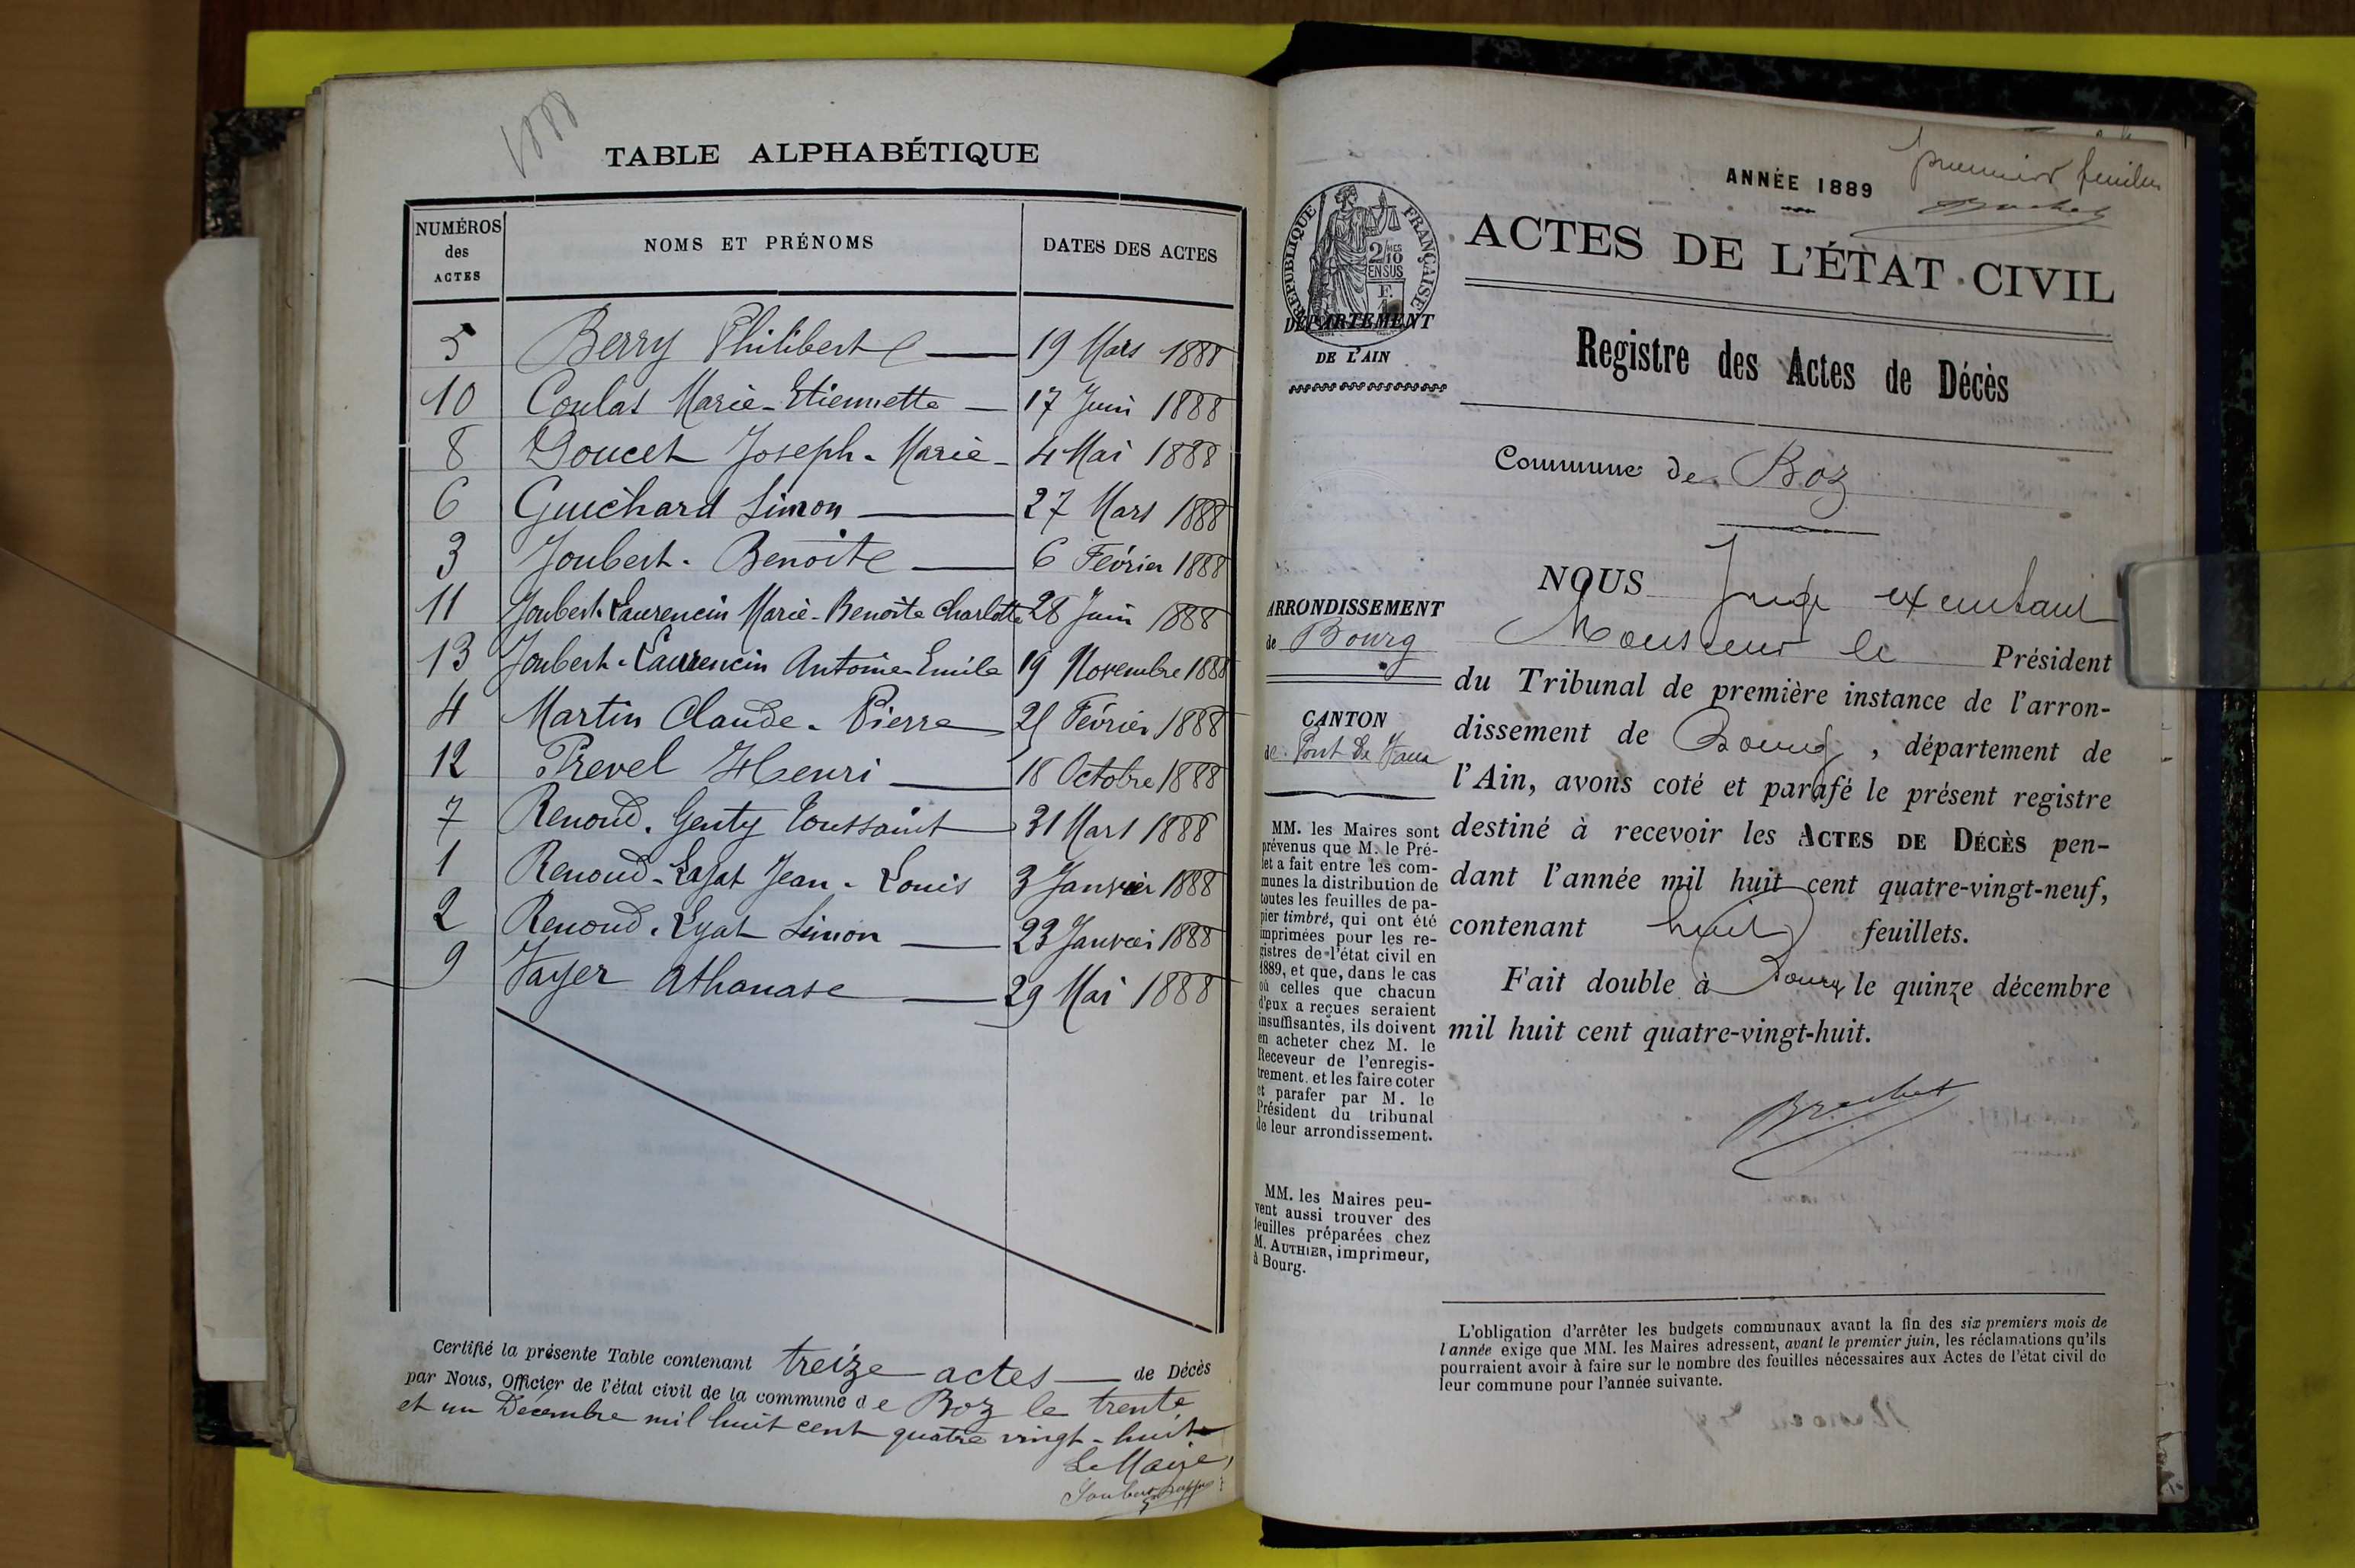 1888
TABLE ALPHABÉTIQUE
NUMÉROS des ACTES | NOMS ET PRÉNOMS | DATES DES ACTES
5 Berry Philiberte 19 Mars 1888
10 Coulas Marie-Etiennette 17 Juin 1888
8 Doucet Joseph-Marie 4 Mai 1888
6 Guichard Simon 27 Mars 1888
3 Joubert. Benoite 6 Février 1888
11 Joubert-Laurencin Marie-Benoite Charlotte 28 Juin 1888
13 Joubert-Laurencin Antoine-Emile 19 Novembre 1888
4 Martin Claude-Pierre 21 Février 1888
12 Prevel Henri 18 Octobre 1888
7 Renoud-Genty Toussaint 31 Mars 1888
1 Renoud-Lajat Jean-Louis 3 Janvier 1888
2 Renoud-Lyat Simon 23 Janvier 1888
9 Vayer Athanase 29 Mai 1888
Certifié la présente Table contenant treize actes de Décès
par Nous, Officier de l'état civil de la commune de Boz le trente
et un Décembre mil huit cent quatre vingt-huit
Le Maire,
premier feuillet
Brochet
ANNÉE 1889
ACTES DE L'ÉTAT CIVIL
Registre des Actes de Décès
RÉPUBLIQUE FRANÇAISE
2/10MES
EN SUS
DÉPARTEMENT
DE L'AIN
Commune de Boz
ARRONDISSEMENT
de Bourg
CANTON
de Pont de Vaux
MM. les Maires sont
prévenus que M. le Pré-
fet a fait entre les com-
munes la distribution de
toutes les feuilles de pa-
pier timbré, qui ont été
imprimées pour les re-
gistres de l'état civil en
1889, et que, dans le cas
où celles que chacun
d'eux a reçues seraient
insuffisantes, ils doivent
en acheter chez M. le
Receveur de l'enregis-
trement. et les faire coter
et parafer par M. le
Président du tribunal
de leur arrondissement.
MM. les Maires peu-
vent aussi trouver des
feuilles préparées chez
M. AUTHIER, imprimeur,
à Bourg.
NOUS Juge exemtant
Monsieur le Président
du Tribunal de première instance de l'arron-
dissement de Bourg, département de
l'Ain, avons coté et parafé le présent registre
destiné à recevoir les ACTES DE DÉCÈS pen-
dant l'année mil huit cent quatre-vingt-neuf,
contenant huit feuillets.
Fait double à Bourg le quinze décembre
mil huit cent quatre-vingt-huit.
Brochet
L'obligation d'arrêter les budgets communaux avant la fin des six premiers mois de
l'année exige que MM. les Maires adressent, avant le premier juin, les réclamations qu'ils
pourraient avoir à faire sur le nombre des feuilles nécessaires aux Actes de l'état civil de
leur commune pour l'année suivante.